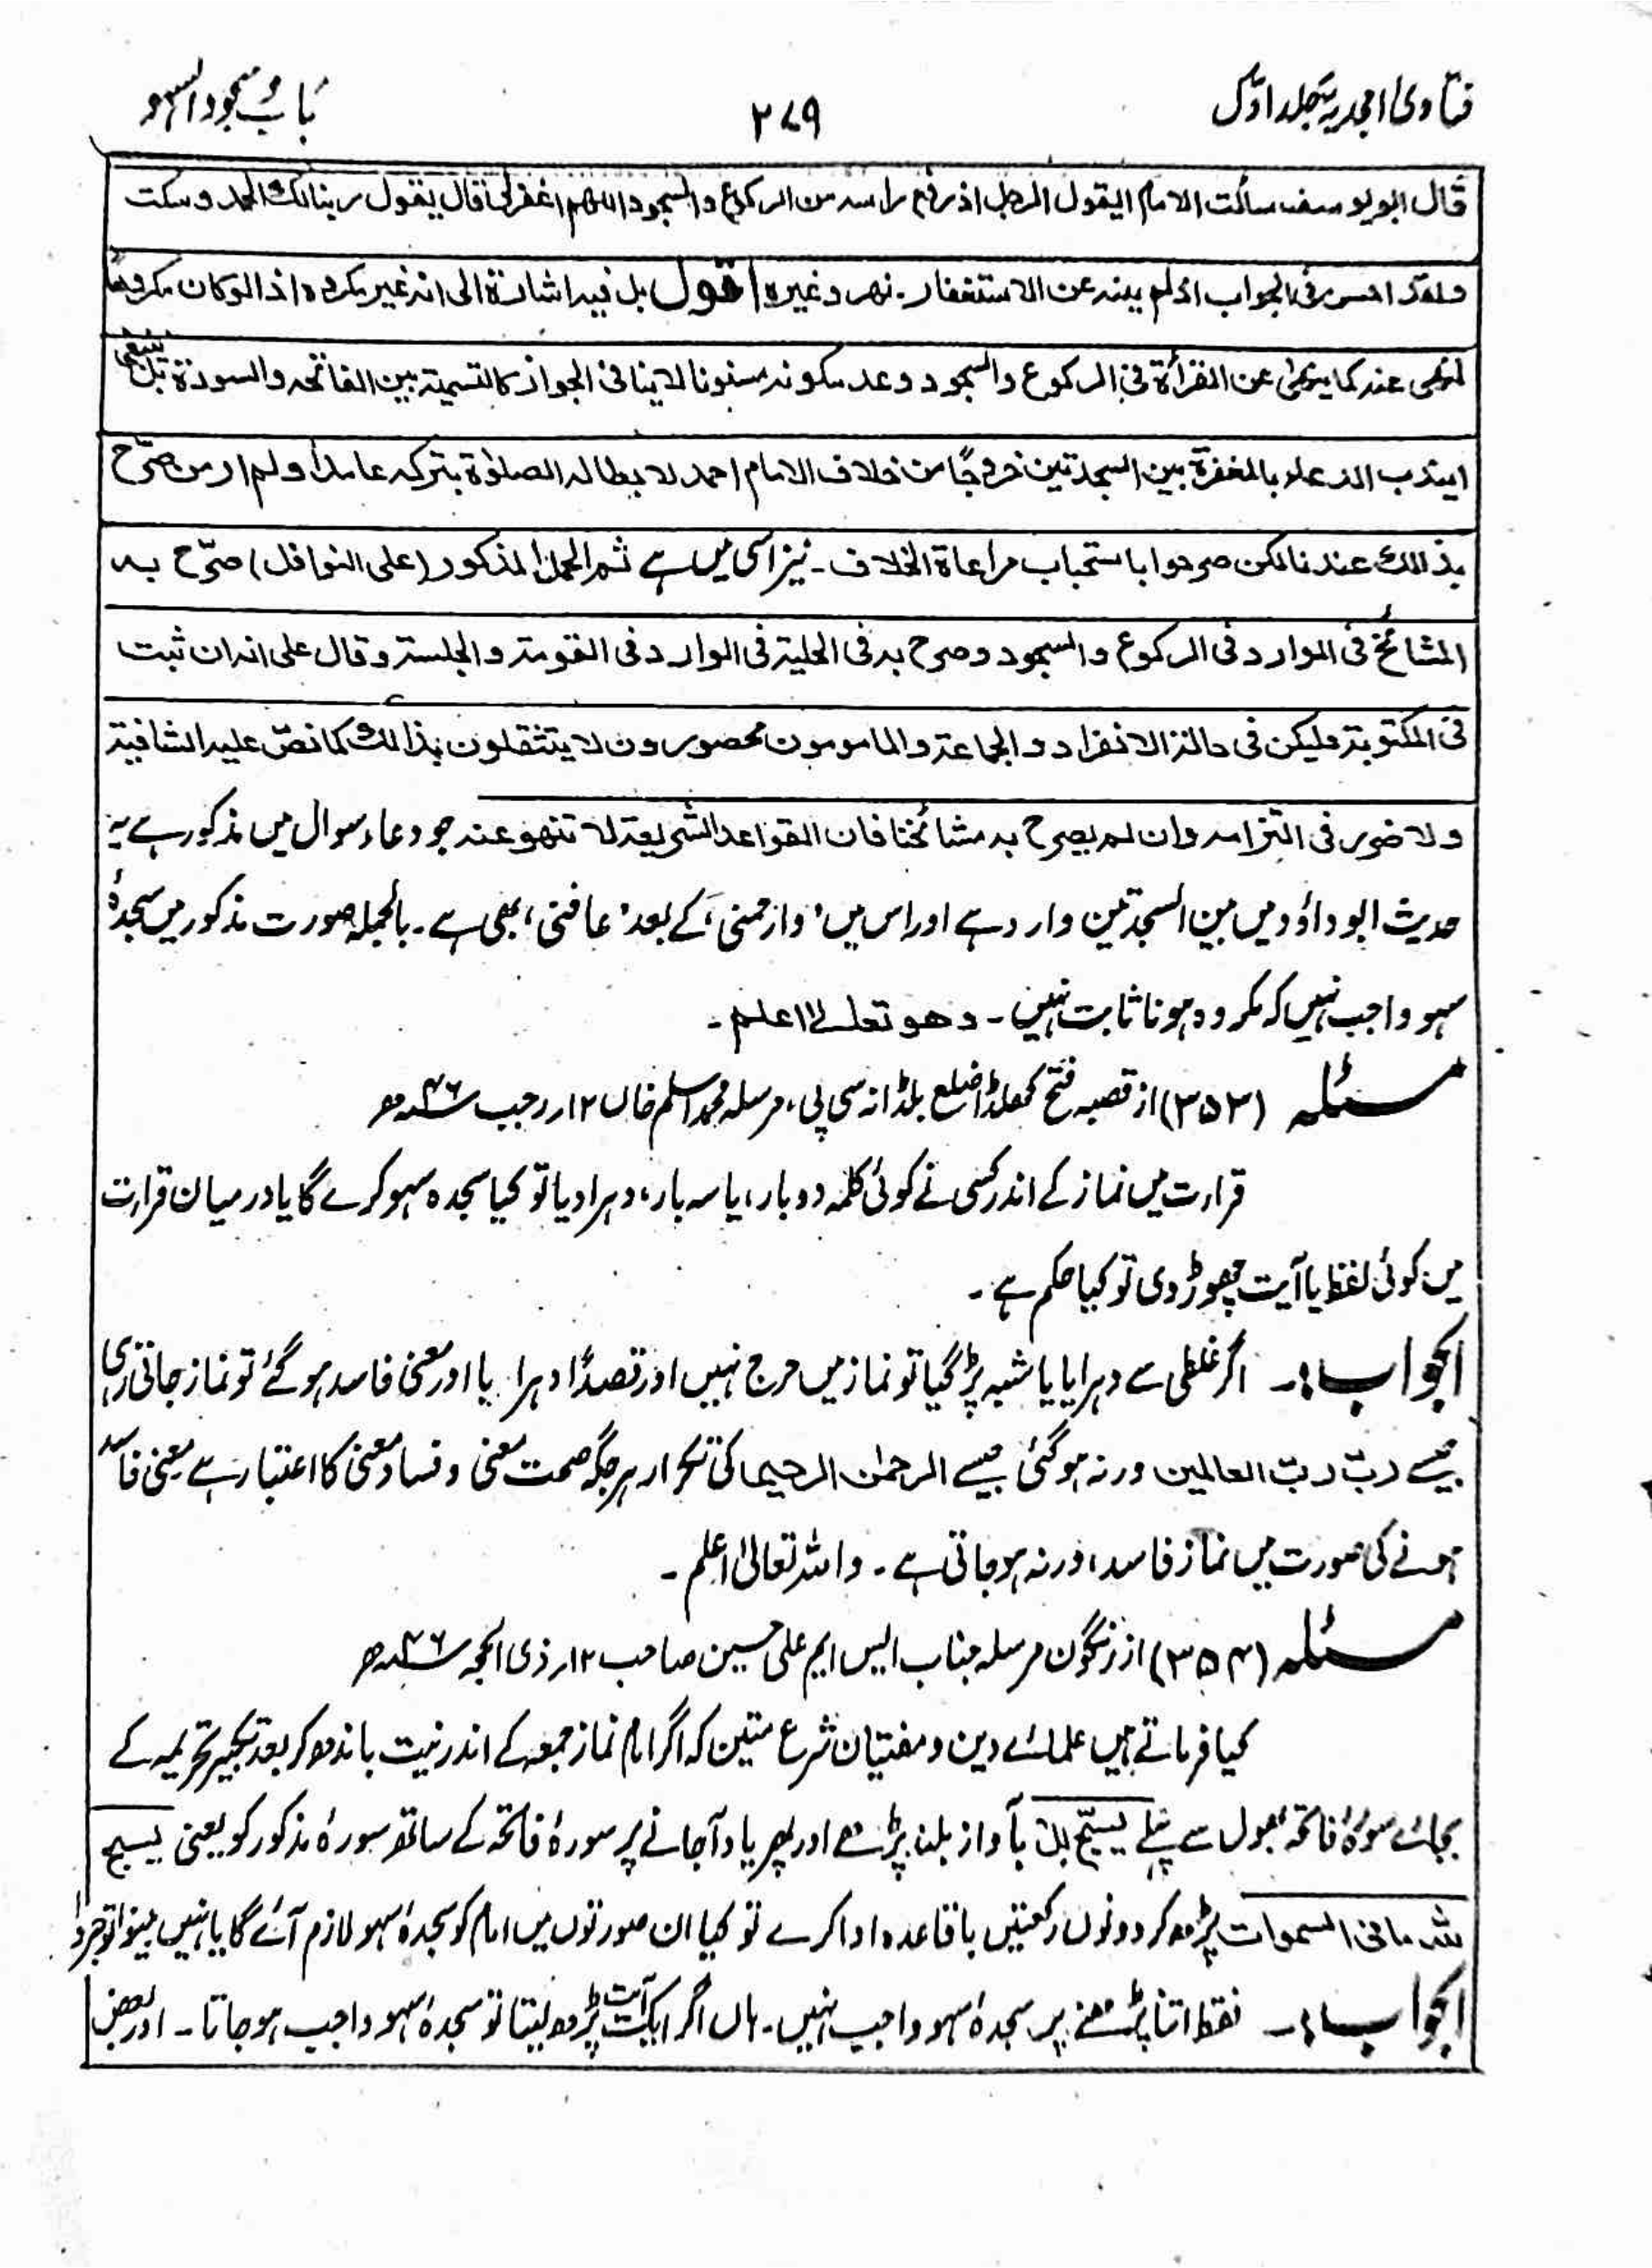 فتاویٰ امجدیہ جلد اوّل
۲۷۹
باب سجود السہو
قال ابو یوسف سألت الامام ایقول الرجل اذا رفع راسہ من الرکوع والسجود اللھم اغفرلی قال یقول ربنا لک الحمد وسکت
ولقد احسن فی الجواب اذ لم ینہ عن الاستغفار۔ نھر وغیرہ اقول بل فیہ اشارۃ الی انہ غیر مکروہ اذ لو کان مکروھا
لنھی عنہ کما ینھی عن القرأۃ فی الرکوع والسجود وعدم کونہ مسنونا لا ینافی الجواز کالتسمیۃ بین الفاتحہ والسورۃ بل ینبغی
ان یندب الدعاء بالمغفرۃ بین السجدتین خروجًا من خلاف الامام احمد لابطالہ الصلوٰۃ بترکہ عامدا ولم ار من صرّح
بذالک عندنا لکن صرحوا باستحباب مراعاۃ الخلاف۔ نیز اسی میں ہے ثم الحمل المذکور (علی النوافل) صرّح بہ
المشائخ فی الوارد فی الرکوع والسجود وصرح بہ فی الحلیۃ فی الوارد فی القومۃ والجلسۃ وقال علی انہ ان ثبت
فی المکتوبۃ فلیکن فی حالۃ الانفراد والجماعۃ والمامومون محصورون لا یتثقلون بذالک کما نصّ علیہ الشافیۃ
ولا ضرر فی التزامہ وان لم یصرح بہ مشائخنا فان القواعد الشریعۃ لا تنھو عنہ جو دعاء سوال میں مذکور ہے یہ
حدیث ابوداؤد میں بین السجدتین وارد ہے اور اس میں ’وارحمنی‘ کے بعد ’عافنی‘ بھی ہے۔ بالجملہ صورت مذکور میں سجدۂ
سہو واجب نہیں کہ مکروہ ہونا ثابت نہیں۔ وھو تعالےٰ اعلم۔
مسئلہ (۳۵۳) از قصبہ فتح کھلڈا ضلع بلڈانہ سی پی، مرسلہ محمد اسلم خاں ۱۲؍ رجب ۴۶ھ
قرارت میں نماز کے اندر کسی نے کوئی کلمہ دوبار، یا سہ بار، دہرا دیا تو کیا سجدہ سہو کرے گا یا درمیان قرارت
میں کوئی لفظ یا آیت چھوڑ دی تو کیا حکم ہے۔
الجواب:۔ اگر غلطی سے دہرایا یا شبہ پڑ گیا تو نماز میں حرج نہیں اور قصدًا دہرایا اور معنی فاسد ہو گئے تو نماز جاتی رہی
جیسے ربّ ربّ العالمین ورنہ ہو گئی جیسے الرحمٰن الرحیم کی تکرار ہر جگہ صحت معنی و فساد معنی کا اعتبار ہے معنی فاسد
ہونے کی صورت میں نماز فاسد، ورنہ ہو جاتی ہے۔ واللہ تعالیٰ اعلم۔
مسئلہ (۳۵۴) از رنگون مرسلہ جناب ایس ایم علی حسین صاحب ۱۲؍ ذی الحجہ ۴۶ھ
کیا فرماتے ہیں علمائے دین و مفتیان شرع متین کہ اگر امام نماز جمعہ کے اندر نیت باندھ کر بعد تکبیر تحریمہ کے
بجائے سورۂ فاتحہ بھول سے پہلے یسبّح للہ بآواز بلند پڑھے اور پھر یاد آجانے پر سورۂ فاتحہ کے ساتھ سورۂ مذکور کو یعنی یسبح
للہ مافی السموات پڑھ کر دونوں رکعتیں باقاعدہ ادا کرے تو کیا ان صورتوں میں امام کو سجدۂ سہو لازم آئے گا یا نہیں بینوا توجروا
الجواب:۔ فقط اتنا پڑھنے پر سجدۂ سہو واجب نہیں۔ ہاں اگر ایک آیت پڑھ لیتا تو سجدۂ سہو واجب ہو جاتا۔ اور بعض